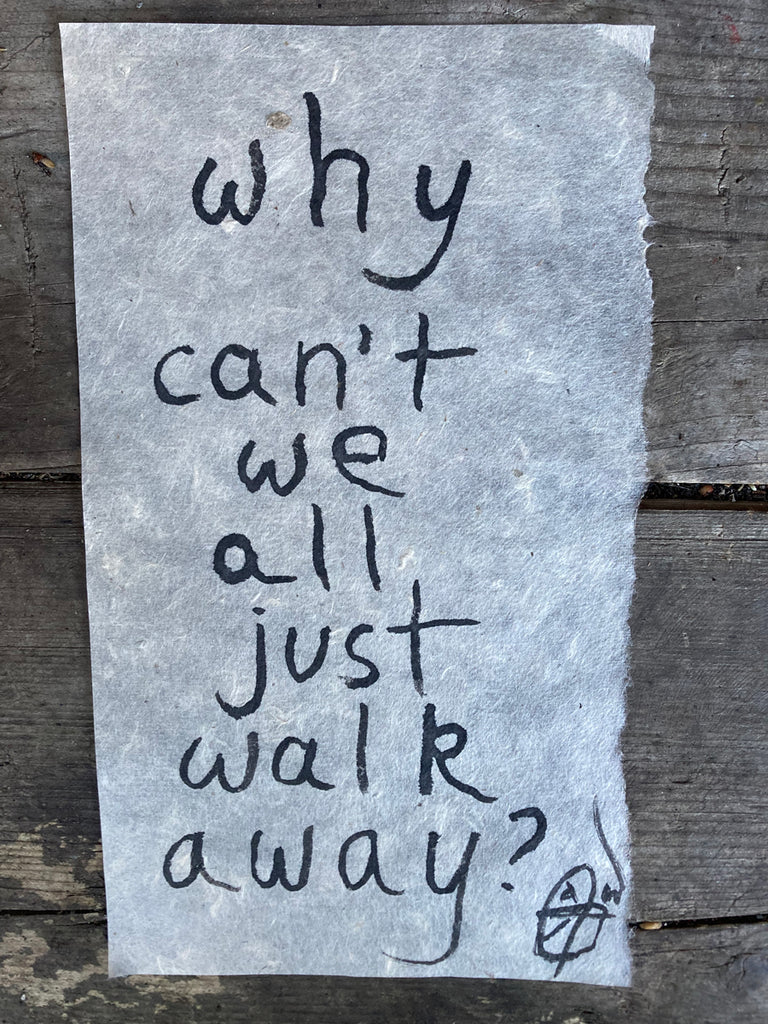 why
can't
we
all
just
walk
away?